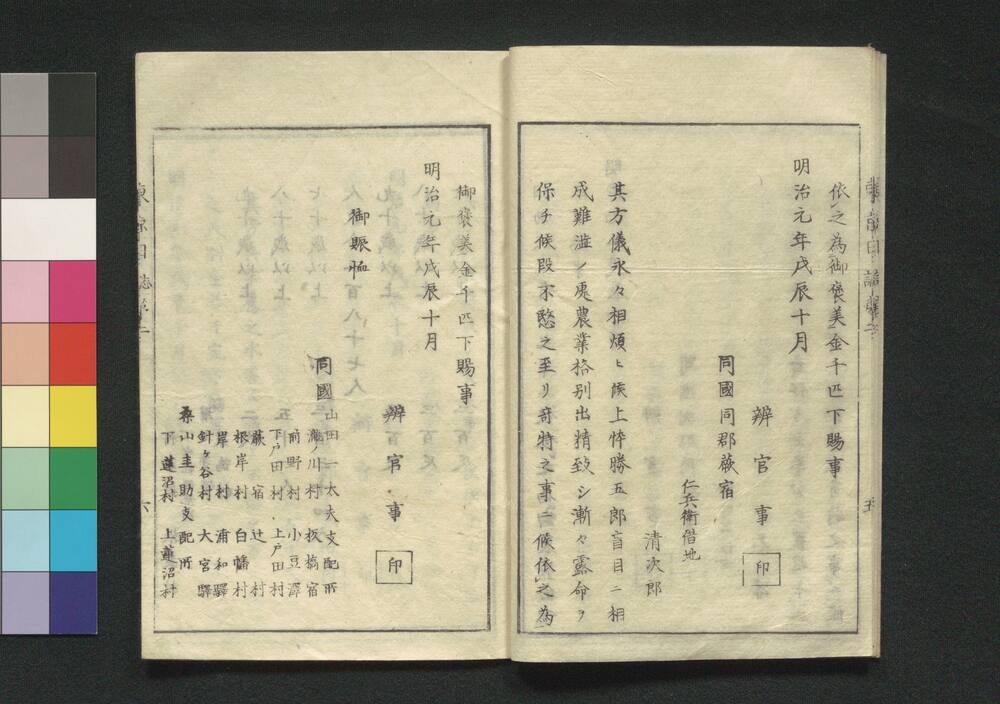 依之為御褒美金千匹下賜事
明治元年戊辰十月
辨官事 印
同國同郡蕨宿
仁兵衛借地
清次郎
其方儀永々相煩ヒ候上悴勝五郎盲目ニ相
成難澁ノ處農業格別出精致シ漸々露命ヲ
保チ候段不愍之至リ奇特之事ニ候依之為
五
御褒美金千匹下賜事
明治元年戊辰十月
辨官事 印
御賑恤
同國山田一太夫支配所
瀧ノ川村 板橋宿
前野村 小豆澤
下戸田村 上戸田村
蕨宿 辻村
根岸村 白幡村
岸村 浦和驛
針ヶ谷村 大宮驛
桑山圭助支配所
下蓮沼村 上蓮沼村
東京日誌第二
六